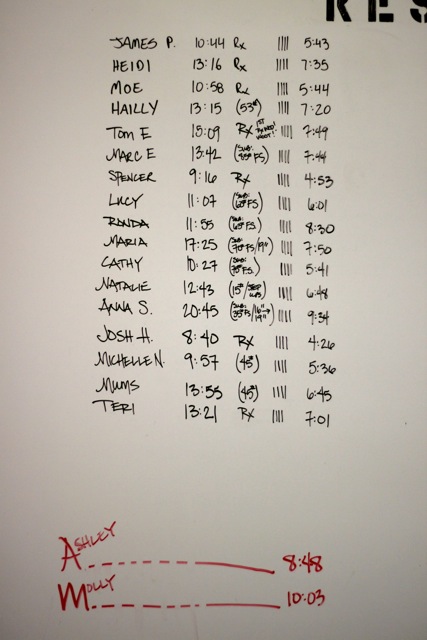 RES
JAMES P. 10:44 Rx |||| 5:43
HEIDI 13:16 Rx |||| 7:35
MOE 10:58 Rx |||| 5:44
HAILLY 13:15 (53#) |||| 7:20
TOM E 15:09 Rx 1ST RX WOD! WOOT! |||| 7:49
MARC E 13:42 (SUB: 85# FS) |||| 7:44
SPENCER 9:16 Rx |||| 4:53
LUCY 11:07 (SUB: 65# FS) |||| 6:01
RANDA 11:55 (SUB: 65# FS) |||| 8:30
MARIA 17:25 (SUB: 75# FS/19") |||| 7:50
CATHY 10:27 (SUB: 75# FS.) |||| 5:41
NATALIE 12:43 (15#/STEP UPS) |||| 6:48
ANNA S. 20:45 (SUB: 35# FS/16"→19") |||| 9:34
JOSH H. 8:40 Rx |||| 4:26
MICHELLE N. 9:57 (45#) |||| 5:36
MUMS 13:55 (45#) |||| 6:45
TERI 13:21 Rx |||| 7:01
ASHLEY 8:48
MOLLY 10:03